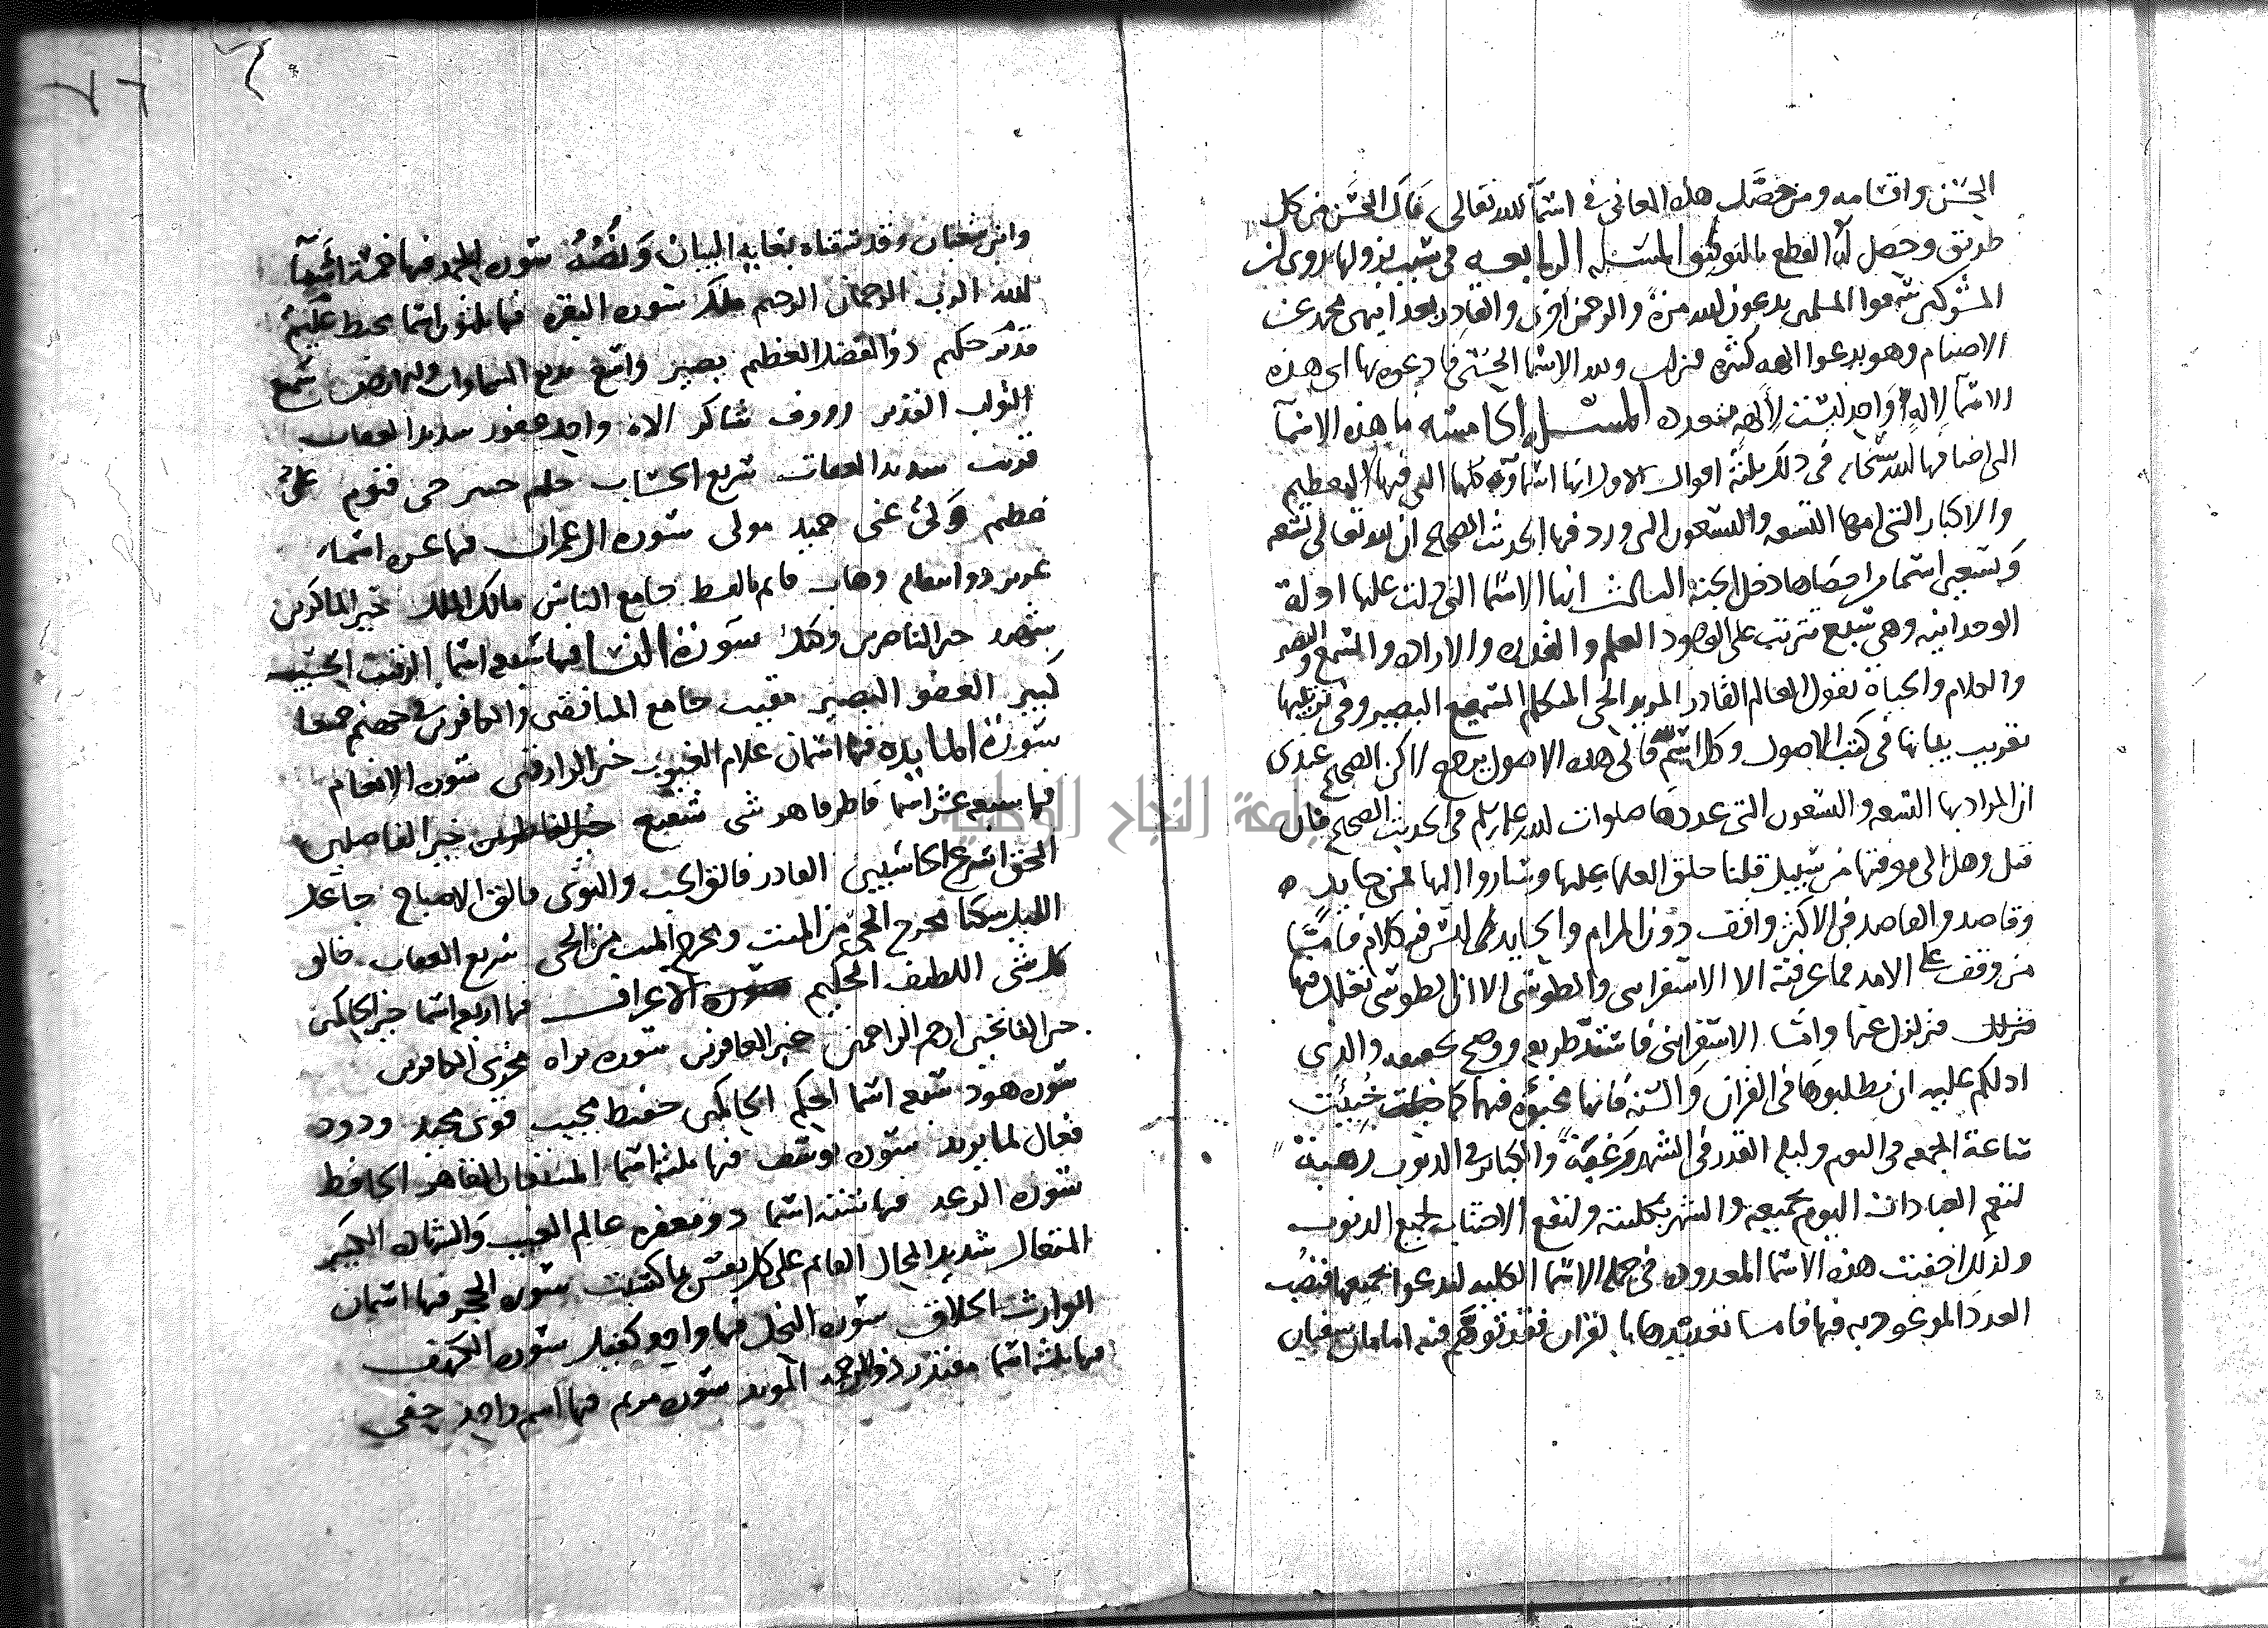 الحسن واقسامه ومن حصل هذه المعاني في اسما الله تعالى فاك الحسن من كل
طريق وحصل له القطع بالتوكيف المسله الرابعه في سبب نزولها روي ان
المشركين سمعوا المسلمين يدعون الله مرة والرحمن اخرى والقادر بعد اينهى محمد عن
الاصنام وهو يدعوا الهه كثيرة فنزلت ولله الاسما الحسنى فادعوه بها اي هذه
الاسما لاله واحد ليست لالهه متعدده المسله الخامسه ما هذه الاسما
التي اضافها الله سبحانه في ذلك ثلثة اقوال الاول انها اسماوه كلها التي فيها التعظيم
والاكبار الثاني انها التسعه والتسعون التي ورد فيها الحديث الصحيح ان لله تعالى تسعه
وتسعين اسما من احصاها دخل الجنة الثالث انها الاسما التي دلت عليها ادلة
الوحدانيه وهي سبع تترتب على الوجود العلم والقدره والاراده والسمع والبصر
والكلام والحياة تقول العالم القادر المريد الحي المتكلم السميع البصير وفي ترتيبها
تقريب بيانها في كتب الاصول وكل اسم لله فالى هذه الاصول يرجع لاكن الصحيح عندي
ان المراد بها التسعه والتسعون التي عددها صلوات الله عليه في الحديث الصحيح فان
قيل وهل الى معرفتها من سبيل قلنا حلق العلما عليها وساروا اليها فمن جايد
وقاصد والقاصد في الاكثر واقف دون المرام والجايد فما ليس فيه كلام فاما
من وقف على الامد فما عرفته الا الاسفرايني والطوسي الا ان الطوسي تقلقل فيها
فنزلك فتزلزل عنها واما الاسفرايني فاستد طريقه ووضح تحقيقه والذي
ادلكم عليه ان تطلبوها في القران والسنة فانها مخبؤة فيهما كما خبئت
ساعة الجمعه في اليوم وليله القدر في الشهر رغبة والكبائر في الذنوب رهبة
لتعم العبادات اليوم بجميعه والشهر بكليته وليقع الاجتناب لجميع الذنوب
ولذلك اخفيت هذه الاسما المعدوده في جمله الاسما الكليه لندعوا بجميعها فنصيب
العدد الموعود به فيها فاما تعديدها بالقران فقد توهم فيه امامان سفيان
وابن شعبان وقد سقناه بغايه البيان ونصه سورة الحمد فيها خمسة اسما
الله الرب الرحمان الرحيم ملك سوره البقره فيها ثلثون اسما محيط عليم
قدير حكيم ذو الفضل العظيم بصير واسع بديع السماوات والارض سميع
التواب العزيز رووف شاكر الاه واحد غفور شديد العذاب
قريب شديد العقاب سريع الحساب حليم خبير حي قيوم علي
عظيم ولي غني حميد مولى سوره ال عمران فيها عشره اسما
عزيز ذو انتقام وهاب قايم بالقسط جامع الناس مالك الملك خير الماكرين
شهيد خير الناصرين وكيل سورة النسا فيها سبعه اسما الرقيب الحسيب
كبير العفو النصير مقيت جامع المنافقين والكافرين في جهنم جميعا
سورة المايده فيها اسمان علام الغيوب خير الرازقين سوره الانعام
فيها سبعه عشر اسما فاطر قاهر شهيد شفيع خير الفاصلين
الحق اسرع الحاسبين القادر فالق الحب والنوى فالق الاصباح جاعل
الليل سكنا مخرج الحي من الميت ومخرج الميت من الحي سريع العقاب خالق
كل شي اللطيف الحكيم سوره الاعراف فيها اربع اسما خير الحاكمين
خير الفاتحين ارحم الراحمين خير الغافرين سوره براه مخزي الكافرين
سوره هود سبعه اسما احكم الحاكمين حفيظ مجيب قوي مجيد ودود
فعال لما يريد سوره يوسف فيها ثلثه اسما المستعان القاهر الحافظ
سوره الرعد فيها ستة اسما ذو مغفره عالم الغيب والشهاده الكبير
المتعال شديد المحال القايم على كل نفس بما كسبت سوره الحجر فيها اسمان
الوارث الخلاق سوره النحل فيها واحد كفيل سوره الكهف
فيها ثلثه اسما مقتدر ذو الرحمه الموئل سوره مريم فيها اسم واحد حفي